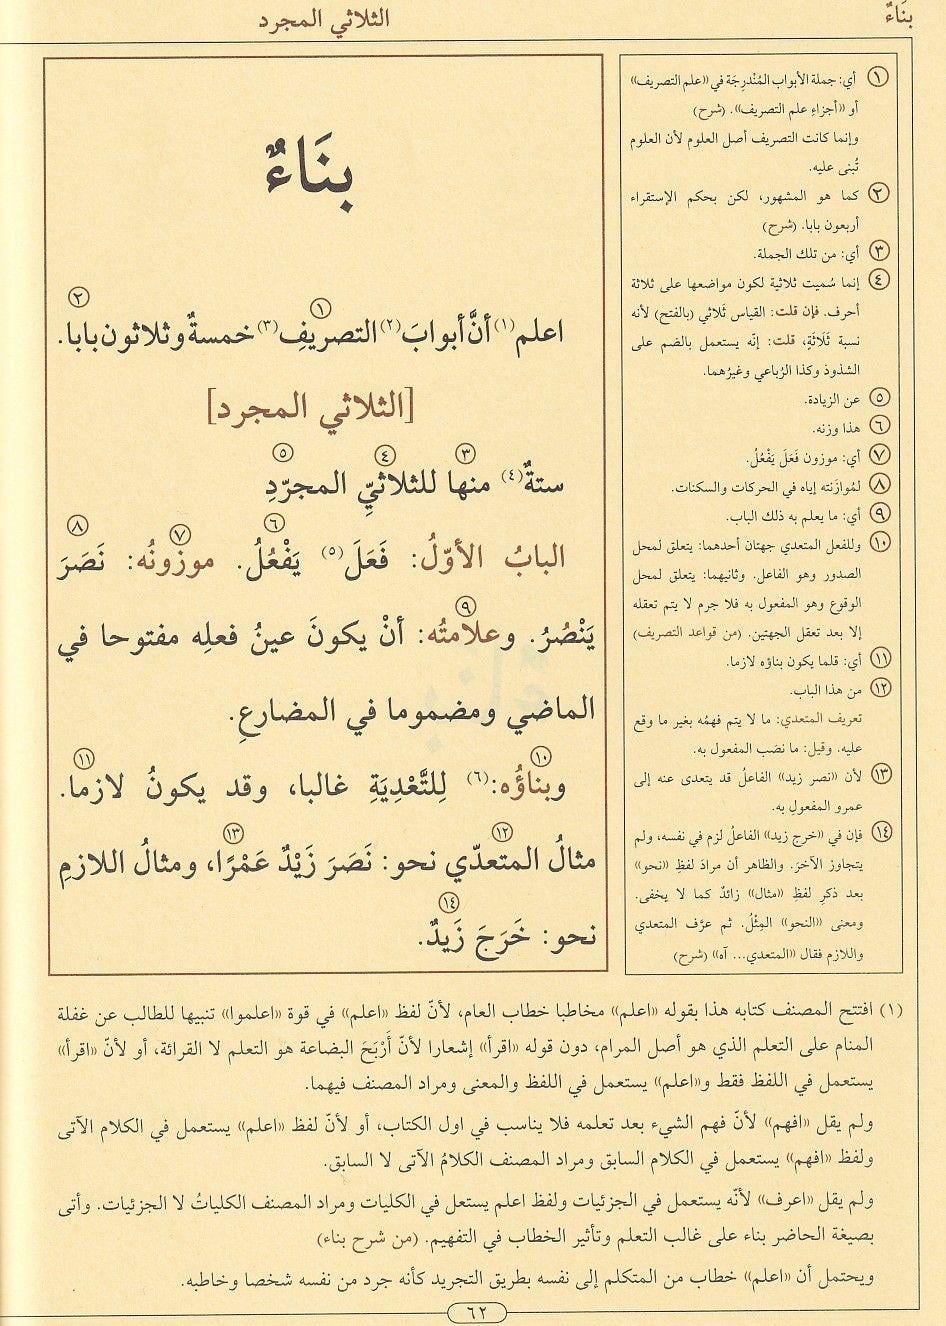 بنَاءٌ
الثلاثي المجرد
بنَاءٌ
اعلم(١) أنَّ أبوابَ(٢) التصريفِ(٣) خمسةٌ وثلاثون بابا.
[الثلاثي المجرد]
ستةٌ(٤) منها للثلاثيِّ المجرّدِ
البابُ الأوّلُ: فَعَلَ(٥) يَفْعُلُ. موزونُه: نَصَرَ
يَنْصُرُ. وعلامتُه: أنْ يكونَ عينُ فعلِه مفتوحا في
الماضي ومضموما في المضارعِ.
وبناؤُه:(٦) لِلتَّعْدِيَةِ غالبا، وقد يكونُ لازما.
مثالُ المتعدّي نحو: نَصَرَ زَيْدٌ عَمْرًا، ومثالُ اللازمِ
نحو: خَرَجَ زَيدٌ.
١ أي: جملة الأبواب المُنْدرِجَة في «علم التصريف»
أو «أجزاءِ علم التصريف». (شرح)
وإنما كانت التصريف أصل العلوم لأن العلوم
تُبنى عليه.
٢ كما هو المشهور، لكن بحكم الإستقراء
أربعون بابا. (شرح)
٣ أي: من تلك الجملة.
٤ إنما سُميت ثلاثية لكون مواضعها على ثلاثة
أحرف. فإن قلت: القياس ثَلاثي (بالفتح) لأنه
نسبة ثَلَاثَةٍ، قلت: إنّه يستعمل بالضم على
الشذوذ وكذا الرُباعي وغيرُهما.
٥ عن الزيادة.
٦ هذا وزنه.
٧ أي: موزون فَعَلَ يَفْعُلُ.
٨ لمُوازَنته إياه في الحركات والسكنات.
٩ أي: ما يعلم به ذلك الباب.
١٠ وللفعل المتعدي جهتان أحدهما: يتعلق لمحل
الصدور وهو الفاعل. وثانيهما: يتعلق لمحل
الوقوع وهو المفعول به فلا جرم لا يتم تعقله
إلا بعد تعقل الجهتين. (من قواعد التصريف)
١١ أي: قلما يكون بناؤه لازما.
١٢ من هذا الباب.
تعريف المتعدي: ما لا يتم فهمُه بغير ما وقع
عليه. وقيل: ما نصَب المفعول به.
١٣ لأن «نصر زيد» الفاعلُ قد يتعدى عنه إلى
عمرو المفعولِ به.
١٤ فإن في «خرج زيد» الفاعلُ لزم في نفسه، ولم
يتجاوز الآخرَ. والظاهر أن مرادَ لفظِ «نحو»
بعد ذكرِ لفظِ «مثال» زائدٌ كما لا يخفى.
ومعنى «النحو» المِثْلُ. ثم عرَّف المتعدي
واللازم فقال «المتعدي... آه» (شرح)
(١) افتتح المصنف كتابه هذا بقوله «اعلم» مخاطبا خطاب العام، لأنّ لفظ «اعلم» في قوة «اعلموا» تنبيها للطالب عن غفلة
المنام على التعلم الذي هو أصل المرام، دون قوله «اقرأ» إشعارا لأنّ أَرْبَحَ البضاعة هو التعلم لا القرائة، أو لأنّ «اقرأ»
يستعمل في اللفظ فقط و«اعلم» يستعمل في اللفظ والمعنى ومراد المصنف فيهما.
ولم يقل «افهم» لأنّ فهم الشيء بعد تعلمه فلا يناسب في اول الكتاب، أو لأنّ لفظ «اعلم» يستعمل في الكلام الآتى
ولفظ «افهم» يستعمل في الكلام السابق ومراد المصنف الكلامُ الآتى لا السابق.
ولم يقل «اعرف» لأنّه يستعمل في الجزئيات ولفظ اعلم يستعل في الكليات ومراد المصنف الكلياتُ لا الجزئيات. وأتى
بصيغة الحاضر بناء على غالب التعلم وتأثير الخطاب في التفهيم. (من شرح بناء)
ويحتمل أن «اعلم» خطاب من المتكلم إلى نفسه بطريق التجريد كأنه جرد من نفسه شخصا وخاطبه.
٦٢